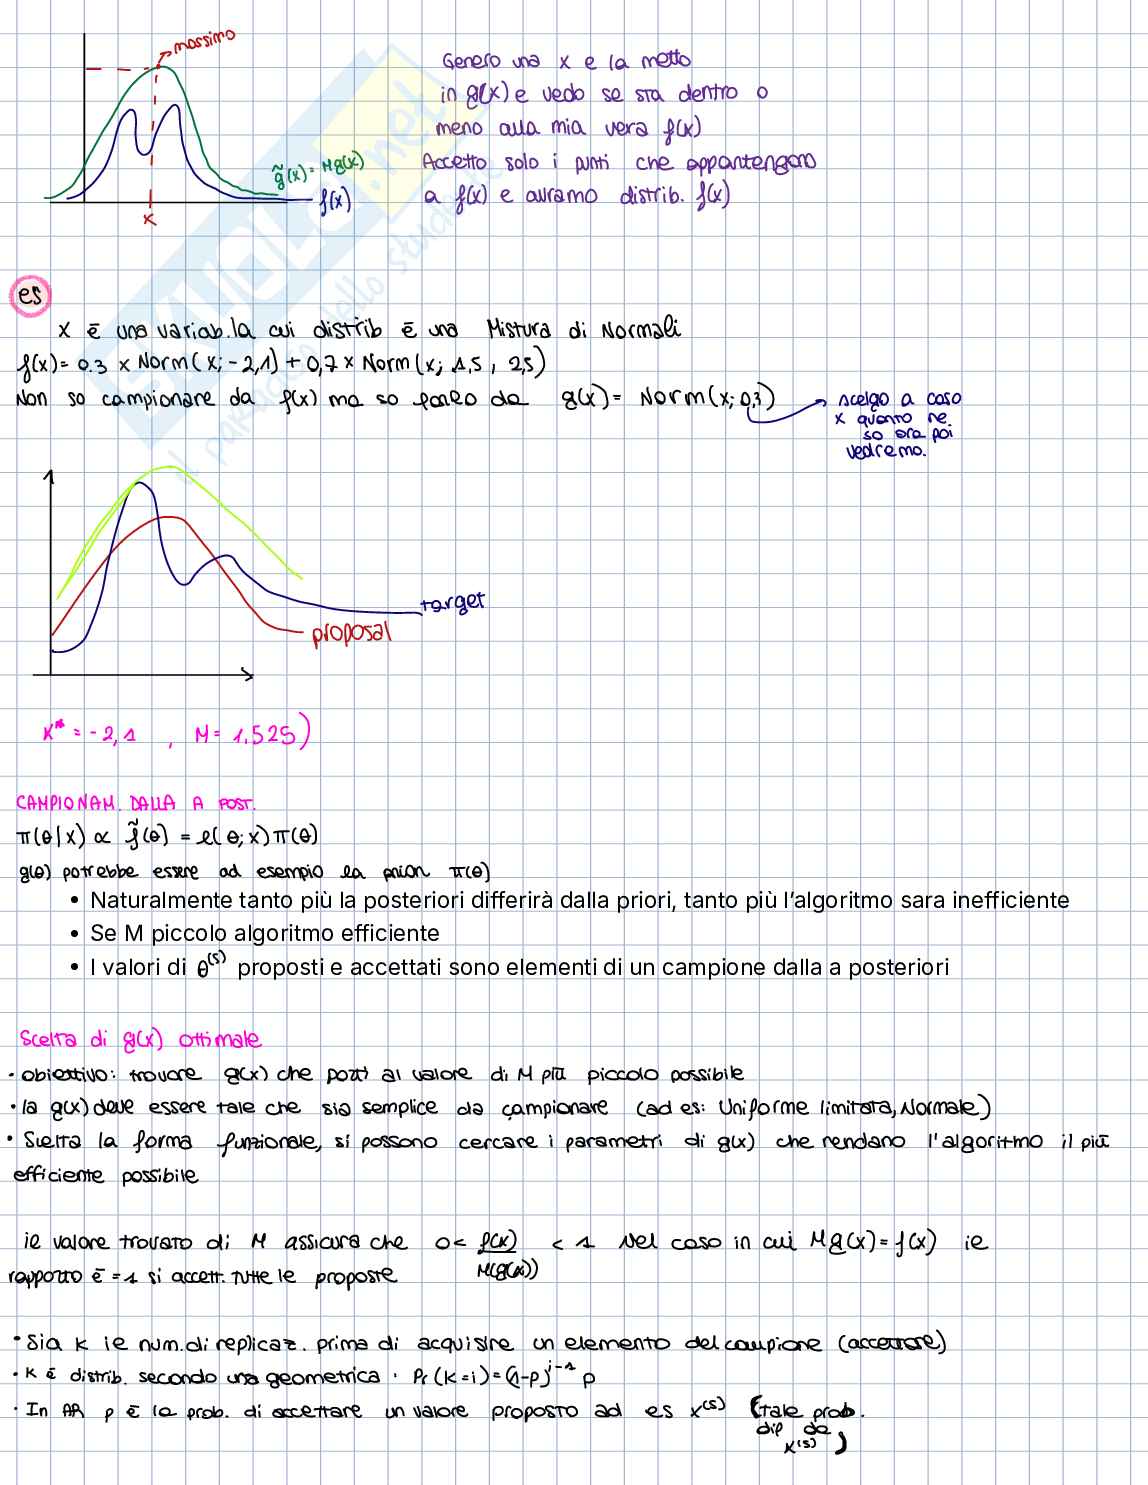 massimo
Genero una x e la metto
in g(x) e vedo se sta dentro o
meno alla mia vera f(x)
Accetto solo i punti che appartengono
a f(x) e avramo distrib. f(x)
g̃(x) = Mg(x)
f(x)
x
SKUOLA.net
il paradiso dello studente
es
x ē una variab. la cui distrib ē una Mistura di Normali
f(x) = 0.3 x Norm(x; -2,1) + 0,7 x Norm(x; 1,5 , 2,5)
Non so campionare da f(x) ma so farlo da g(x) = Norm(x; 0,3)
scelgo a caso
x quanto ne
so ora poi
vedremo.
target
proposal
x* = -2,1 , M = 1.525)
CAMPIONAM. DALLA A POST.
π(θ|x) ∝ f̃(θ) = l(θ;x)π(θ)
g(θ) potrebbe essere ad esempio la prion π(θ)
• Naturalmente tanto più la posteriori differirà dalla priori, tanto più l'algoritmo sara inefficiente
• Se M piccolo algoritmo efficiente
• I valori di θ^(s) proposti e accettati sono elementi di un campione dalla a posteriori
Scelta di g(x) ottimale
• obiettivo: trovare g(x) che porti al valore di M più piccolo possibile
• la g(x) deve essere tale che sia semplice da campionare (ad es: Uniforme limitata, Normale)
• Scelta la forma funzionale, si possono cercare i parametri di g(x) che rendano l'algoritmo il più
efficiente possibile
ie valore trovato di M assicura che 0 < f(x) / M(g(x)) < 1 Nel caso in cui Mg(x) = f(x) ie
rapporto ē = 1 si accett. tutte le proposte
• Sia k ie num. di replicaz. prima di acquisire un elemento del campione (accettare)
• k ē distrib. secondo una geometrica • Pr(k=i) = (1-p)^i-1 p
• In AR p ē la prob. di accettare un valore proposto ad es x^(s) (tale prob.
dip da
x^(s))